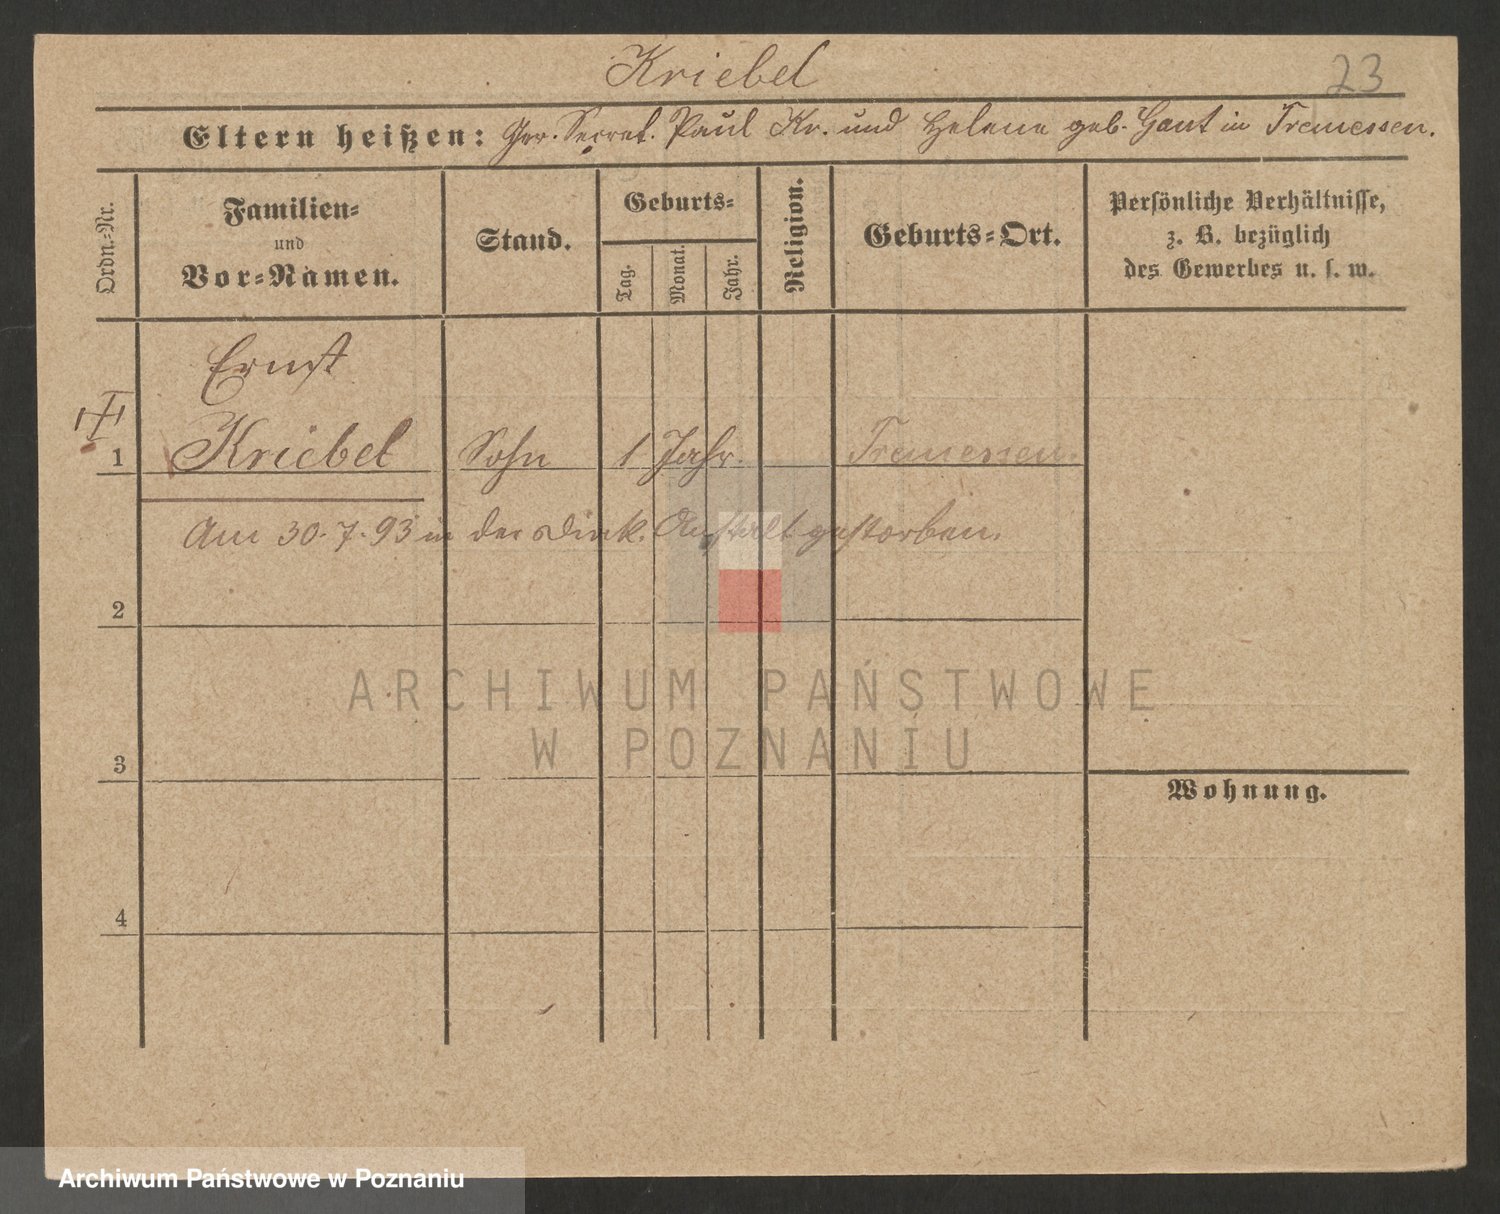 Kriebel
23
Eltern heißen: Ger. Secret. Paul Kr. und Helene geb. Gant in Tremessen.
Ordn.-Nr.
Familien-
und
Vor-Namen.
Stand.
Geburts-
Tag.
Monat.
Jahr.
Religion.
Geburts-Ort.
Persönliche Verhältnisse,
z. B. bezüglich
des Gewerbes u. s. w.
Ernst
1 Kriebel Sohn 1 Jahr. Tremessen.
Am 30.7.93 in der Diak. Anstalt gestorben.
2
ARCHIWUM PAŃSTWOWE
W POZNANIU
3
Wohnung.
4
Archiwum Państwowe w Poznaniu